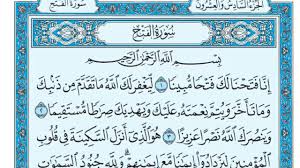 الجزء السادس والعشرون
سورة الفتح
سُورَةُ الفَتْحِ
بِسْمِ ٱللَّهِ ٱلرَّحْمَٰنِ ٱلرَّحِيمِ
إِنَّا فَتَحْنَا لَكَ فَتْحًا مُّبِينًا ١ لِّيَغْفِرَ لَكَ ٱللَّهُ مَا تَقَدَّمَ مِن ذَنۢبِكَ
وَمَا تَأَخَّرَ وَيُتِمَّ نِعْمَتَهُۥ عَلَيْكَ وَيَهْدِيَكَ صِرَٰطًا مُّسْتَقِيمًا ٢
وَيَنصُرَكَ ٱللَّهُ نَصْرًا عَزِيزًا ٣ هُوَ ٱلَّذِىٓ أَنزَلَ ٱلسَّكِينَةَ فِى قُلُوبِ
ٱلْمُؤْمِنِينَ لِيَزْدَادُوٓا۟ إِيمَٰنًا مَّعَ إِيمَٰنِهِمْ ۗ وَلِلَّهِ جُنُودُ ٱلسَّمَٰوَٰتِ